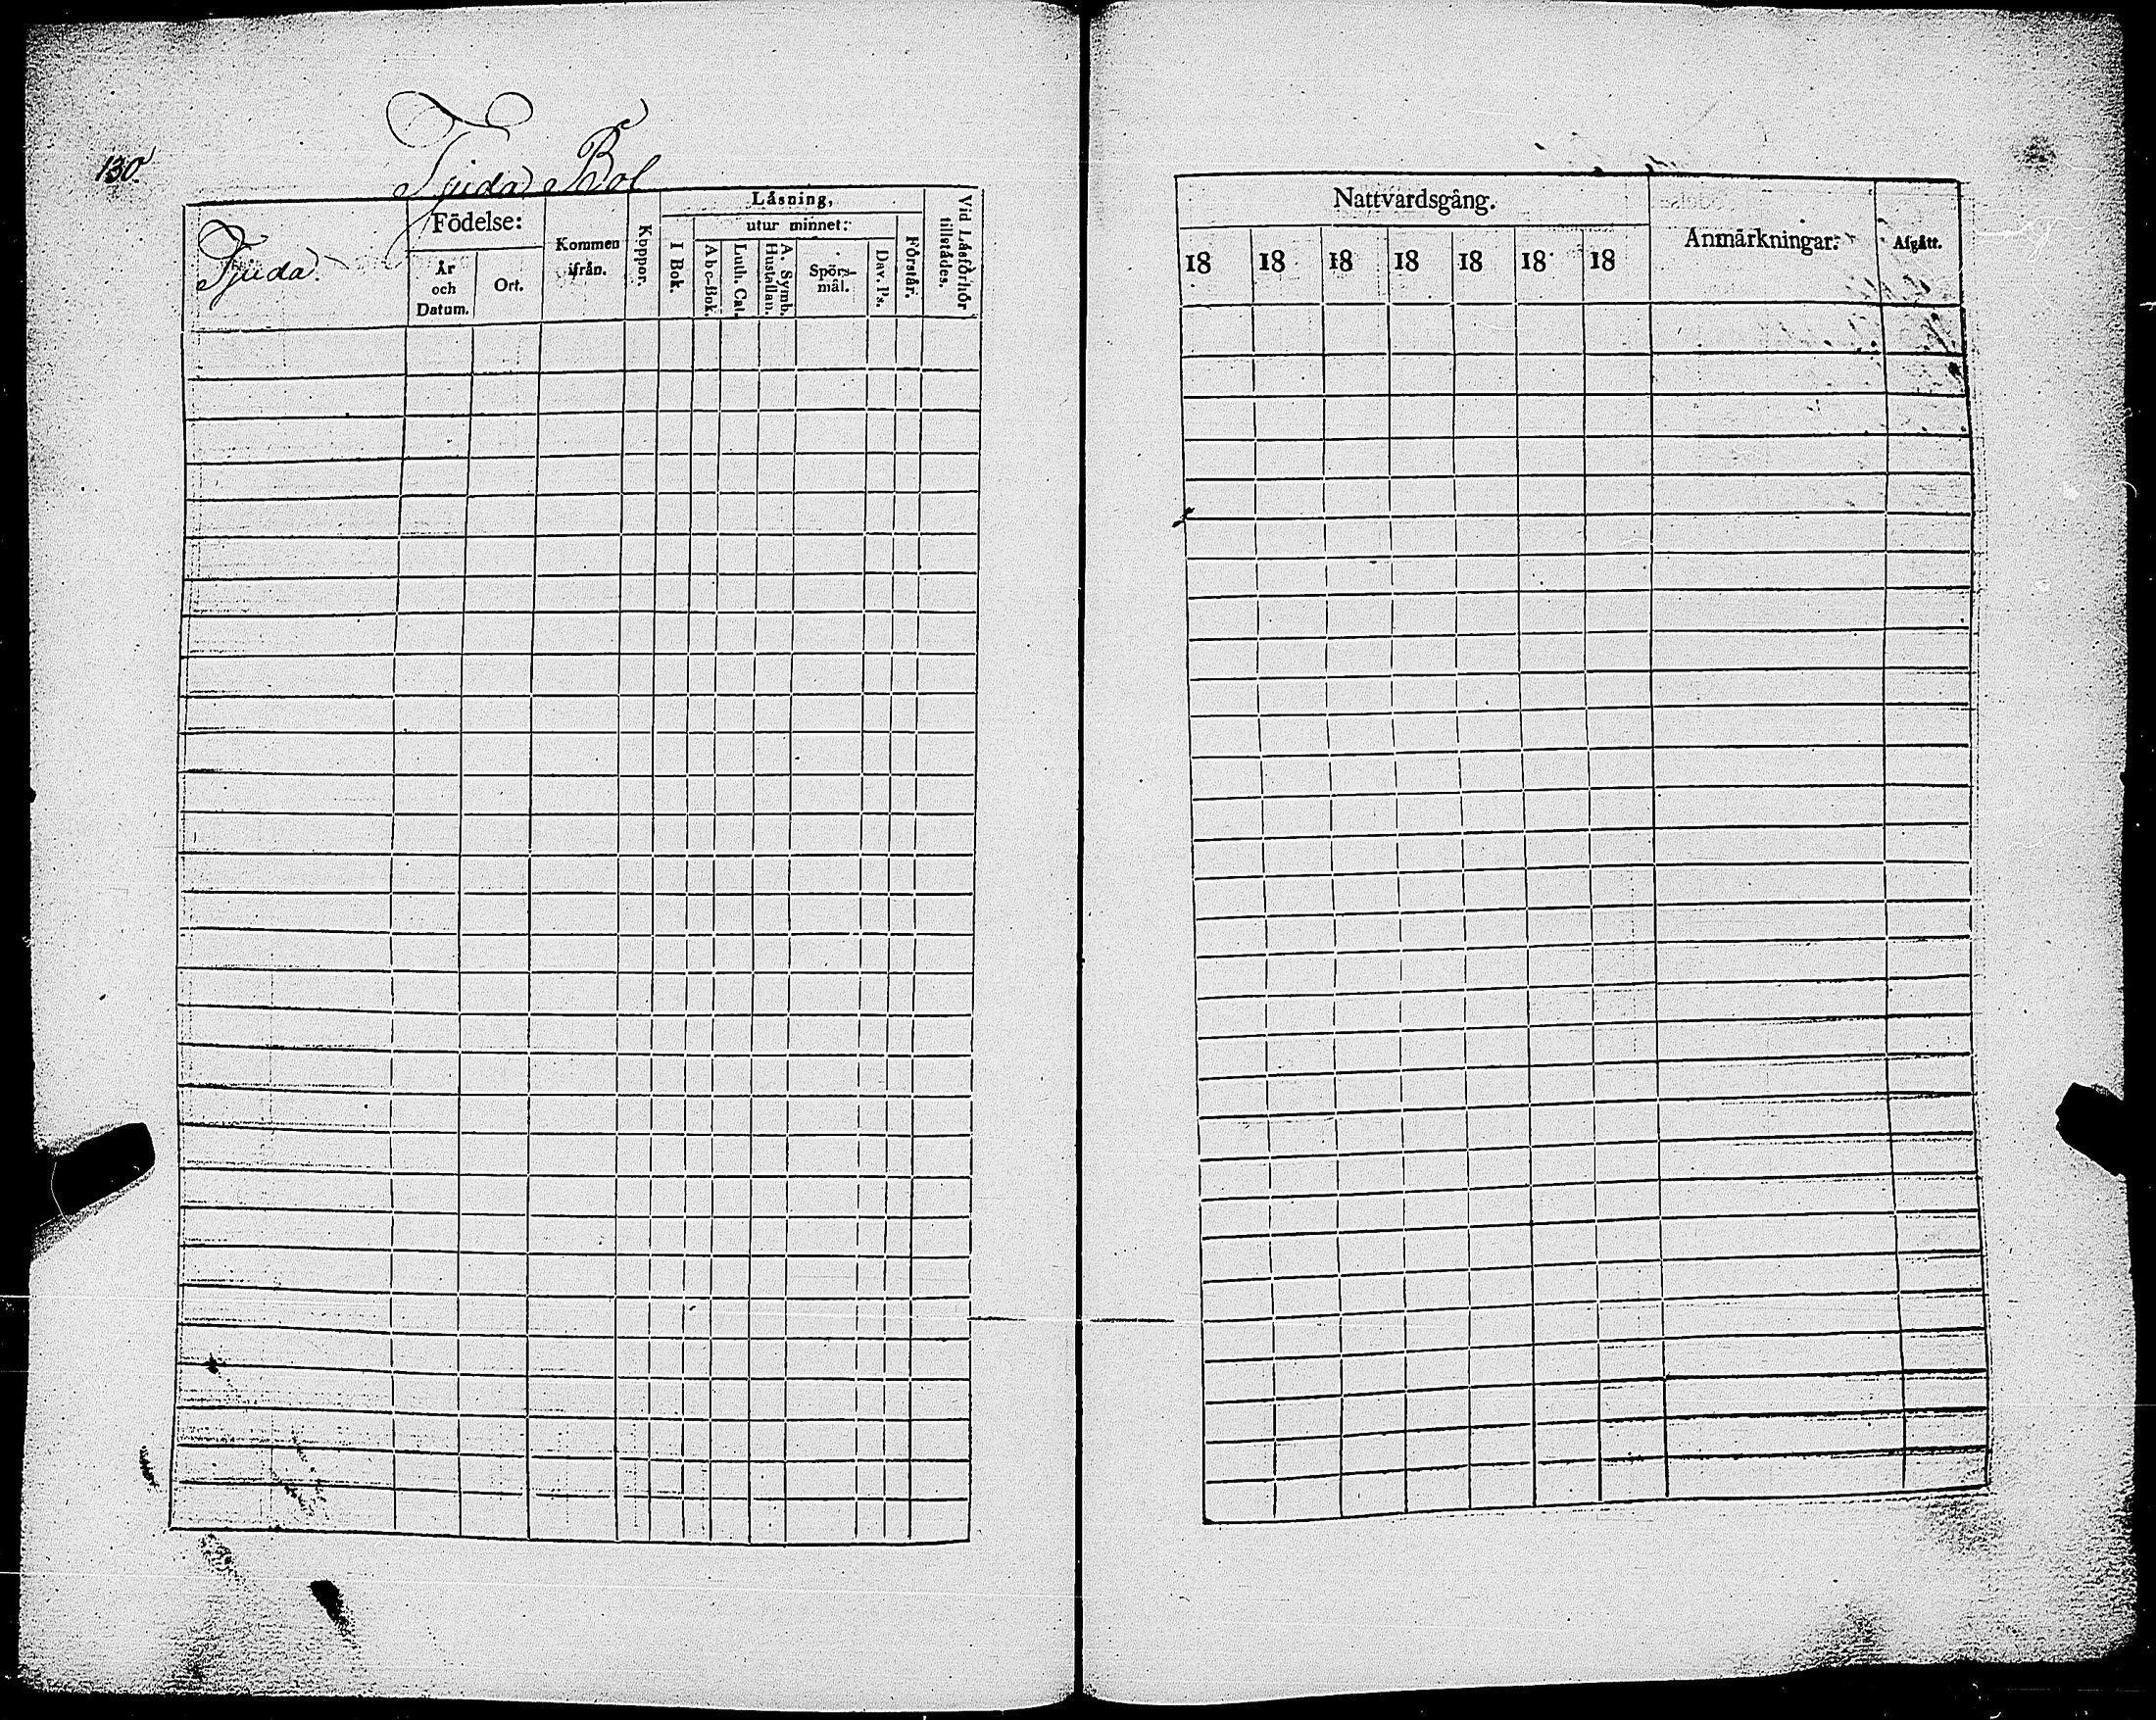 130.
Tjuda Bol
Tjuda.
Födelse:
År
och
Datum.
Ort.
Kommen
ifrån.
Koppor.
Låsning,
utur minnet:
I Bok.
Abc-Bok.
Luth. Cat.
A. Symb.
Hustaflan.
Spörs-
mål.
Dav. Ps.
Förstår.
Vid Låsförhör
tillstådes.
Nattvardsgång.
18 18 18 18 18 18 18
Anmärkningar.
Afgått.